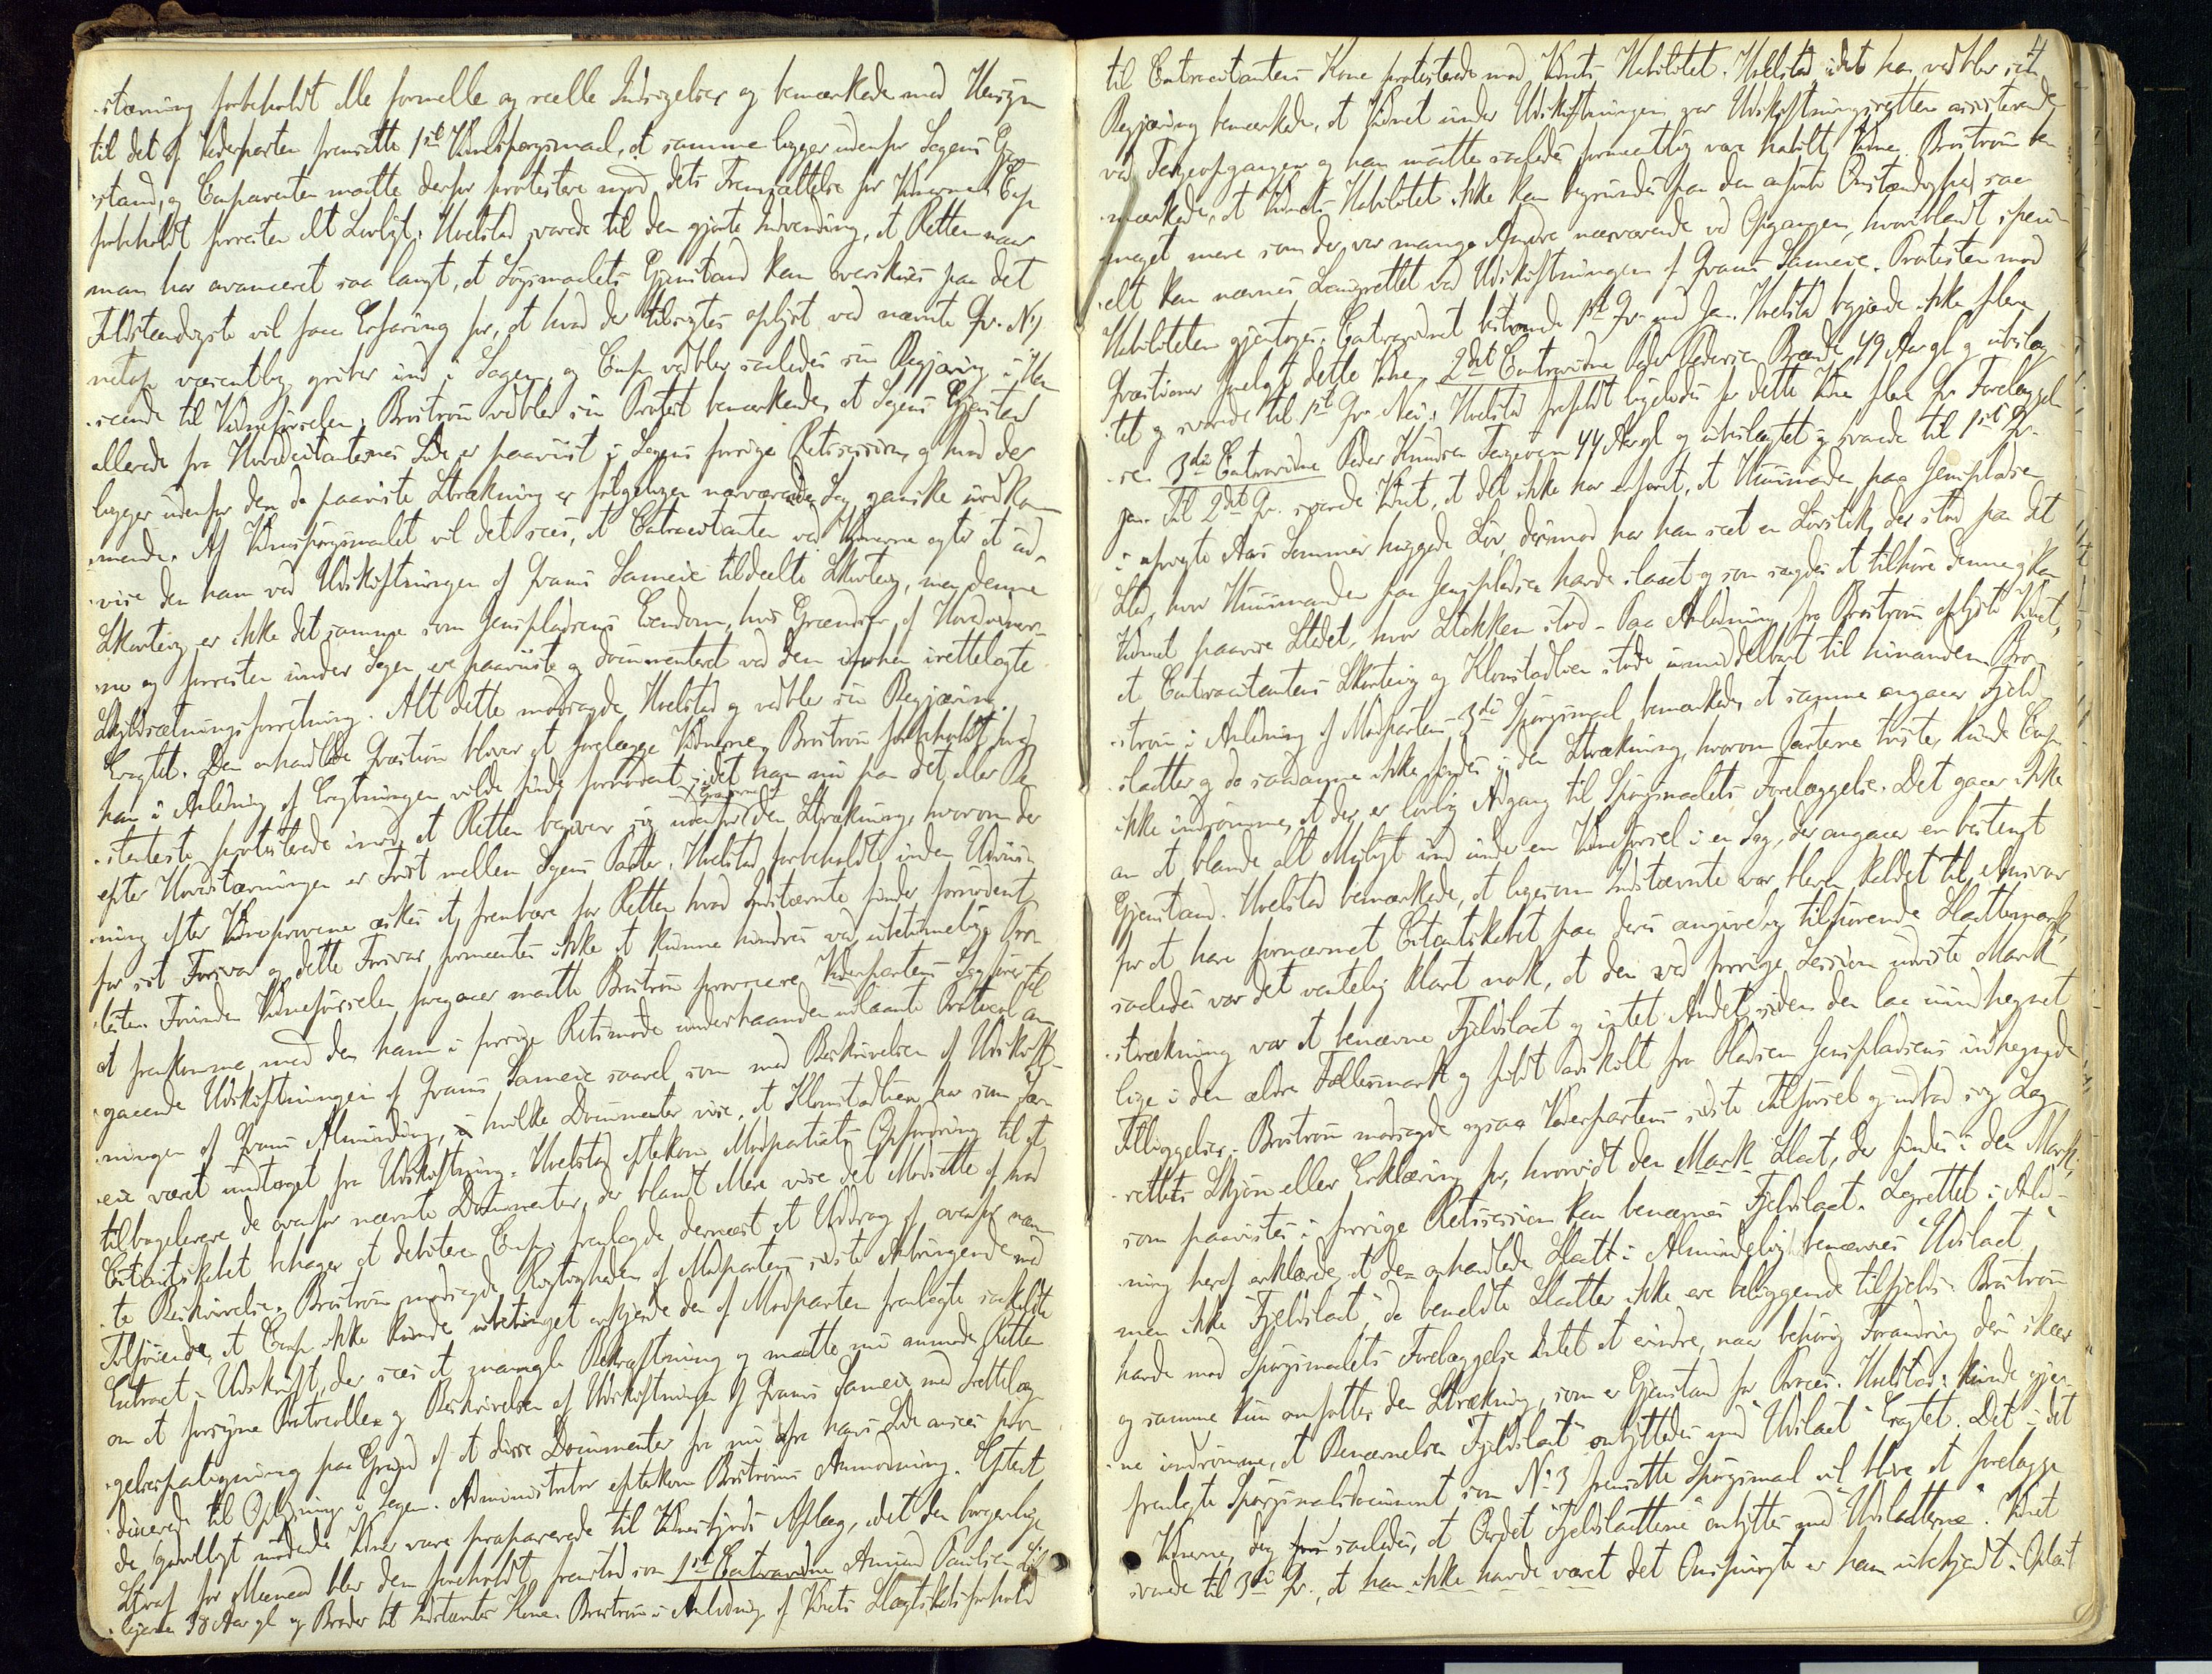 stævning forbeholdt alle formelle og reelle Indsigelser og bemærkede med Hensyn
til det af Vederparten fremsatte 1ste Vidnespørgsmaal, at samme ligger udenfor Sagens Gjen-
stand, og Comparenten maatte derfor protestere mod dets Fremsættelse for Vidnerne. Comp.
forbeholdt forresten Alt Lovligt. Hvelstad svarede til den gjorte Indvending, at Retten naar
man har avanceret saa langt, at Søgsmaalets Gjenstand kan overskues paa det
Fuldstændigste vil faae Erfaring for, at hvad der tilsigtes oplyst ved nævnte Qv. No 1
netop væsentlig griber ind i Sagen, og Comp. vedblev saaledes sin Begjæring i Hen-
seende til Vidneførselen. Broström vedblev sin Protest bemærkende, at Sagens Gjenstand
allerede fra Hovedcitanternes Side er paaviist i Sagens forrige Retssession, og hvad der
ligger udenfor den da paaviste Strækning er følgeligen nærværende Sag ganske uvedkom-
mende. Af Vidnespørgsmaalet vil det sees, at Contracitanten ved Vidnerne agter at ud-
vise den ham ved Udskiftningen af Grans Sameie tildeelte Skovteig, men denne
Skovteig er ikke det samme som Jenspladsens Eiendom, hvis Grændser af Hovedvidner-
ne og forresten under Sagen ere paaviiste og documenteret ved den iforhen irettelagte
Skyldsætningsforretning. Alt dette modsagde Hvelstad og vedblev sin Begjæring.
Eragtet. Den omhandlede Qvæstion bliver at forelægge Vidnerne. Broström forbeholdt, hvad
han i Anledning af Eragtningen vilde finde fornødent, idet han nu paa det aller Be-
stemteste protesterede imod, at Retten begiver sig udenfor Grændserne af den Strækning, hvorom der
efter Hovedstævningen er Tvist mellem Sagens Parter. Hvelstad forbeholdt, inden Udviis-
ning efter Vidneprovene æskes at frembære for Retten hvad Indstævnte finder fornødent
for sit Forsvar og dette Forsvar formeentes ikke at kunne hindres ved ubetimelige Pro-
tester. Førinden Vidneførselen foregaaer maatte Broström provocere Vederpartens Sagfører til
at fremkomme med den ham i forrige Retsmøde underhaanden udlaante Protocol an-
gaaende Udskiftningen af Grans Sameie saavel som med Beskrivelsen af Udskift-
ningen af Grans Almending, hvilke Documenter vise, at Klomstadlien har som Sær-
eie været undtaget fra Udskiftning. Hvelstad efterkom Modpartiets Opfordring til at
tilbagelevere de ovenfor nævnte Documenter, der blandt Mere vise det Modsatte af, hvad
Citantskabet behager at debitere. Comp. fremlagde dernæst et Uddrag af ovenfor nævn-
te Beskrivelse. Broström modsagde Rigtigheden af Modpartens sidste Anbringende med
Tilføiende, at Comp. ikke kunde ubetinget erkjende den af Modparten fremlagte saakaldte
Extract-Udskrift, der sees at mangle Bekræftning og maatte nu anmode Retten
om at forsyne Protocollen og Beskrivelsen af Udskiftningen af Grans Sameie med Irettelæg-
gelsespategning paa Grund af at disse Documenter fra nu af fra hans Side ansees pro-
ducerede til Oplysning i Sagen. Administrator efterkom Broströms Anmodning. Efterat
de godvilligt mødende Vidner vare præparerede til Vidnesbyrds Aflæg, idet den borgerlige
Straf for Meeneed blev dem foreholdt, fremstod som 1ste Contravidne Amund Paulsen
38 Aar gl. og Broder til Indstævntes Kone. Broström i Anledning af Vidnets Slægtskabsforhold
4
til Contracitantens Kone protesterede mod Vidnets Habilitet. Hvelstad, idet han vedblev sin
Begjæring bemærkede, at Vidnet under Udskiftningen var Udskiftningsretten assisterende
ved Teigeopgangen og han maatte saaledes formeentlig være habilt Vidne. Broström be-
mærkede, at Vidnets Habilitet ikke kan begrundes paa den anførte Omstændighed, saa
meget mere som der var mange Andre nærværende ved Opgangen, hvoriblandt speci-
elt kan nævnes Laugrettet ved Udskiftningen af Grans Sameie. Protesten mod
Habiliteten gjentoges. Contravidnet besvarede 1ste Qv. med Ja. Hvelstad begjærede ikke flere
Qvæstioner forelagt dette Vidne. 2det Contravidne Peder Pedersen Brænde, 49 Aar gl. og ubeslæg-
tet og svarede til 1ste Qv. Nei. Hvelstad frafaldt ligeledes for dette Vidne flere Qv. Forelæggel-
se. 3die Contravidne Peder Knudsen 44 Aar gl. og ubeslægtet og svarede til 1ste Qv.
Ja. Til 2det Qv. svarede Vidnet, at det ikke har erfaret, at Huusmanden paa Jenspladsen
i afvigte Aars Sommer huggede Løv, derimod har han seet en Løvstak, der stod paa det
Sted, hvor Huusmanden paa Jenspladsen havde slaaet og som sagdes at tilhøre denne og kan
Vidnet paavise Stedet, hvor Stakken stod. Paa Anledning fra Broström oplyste Vidnet,
at Contracitantens Skovteig og Klomstadlien støde umiddelbart til hinanden. Bro-
ström i Anledning af Modpartens 3die Spørgsmaal bemærkede, at samme angaaer Fjeld-
slatter og da saadanne ikke findes i den Strækning, hvorom Parterne tviste, kunde Comp.
ikke indrømme, at der er lovlig Adgang til Spørgsmaalets Forelæggelse. Det gaaer ikke
an at blande alt Muligt ind under en Vidneførsel i en Sag, der angaaer en bestemt
Gjenstand. Hvelstad bemærkede, at ligesom Indstævnte var bleven kaldet til Ansvar
for at have fornærmet Citantskabet paa deres angivelig tilhørende Slattemark,
saaledes var det ventelig klart nok, at den ved forrige Session udviste Mark-
strækning var at benævne Fjeldslaat og intet Andet, siden den laa uindhegnet
lige i den ældre Fællesmark og fuldt adskilt fra Pladsen Jenspladsens indhegnede
Tilliggelser. Broström modsagde ogsaa Vederpartens sidste Tilførsel og udbad sig Lag-
rettets Skjøn eller Erklæring for, hvorvidt den Mark Slaat, der findes i den Mark,
som paavistes i forrige Retssession kan benævnes Fjeldslaat. Lagrettet i Anled-
ning heraf erklærede, at den omhandlede Slaatt i Almindelighed benævnes "Udslaat"
men ikke "Fjeldslaat", da bemeldte Slatter ikke ere beliggende tilfjelds. Broström
havde mod Spørgsmaalets Forelæggelse Intet at erindre, naar behørig Forandring deri skeer
og samme kun omfatter den Strækning, som er Gjenstand for Proces. Hvelstad kunde gjer-
ne indrømme, at Benævnelsen "Fjeldslaat" ombyttedes med "Udslaat". Eragtet. Det i det
fremlagte Spørgsmaalsdocument som No 3 fremsatte Spørgsmaal vil blive at forelægge
Vidnerne, dog saaledes, at Ordet "Fjeldslaatterne" ombyttes med "Udslatterne". Vidnet
svarede til 3die Qv., at han ikke havde været det Omspurgte er ham ubekjendt. Oplæst